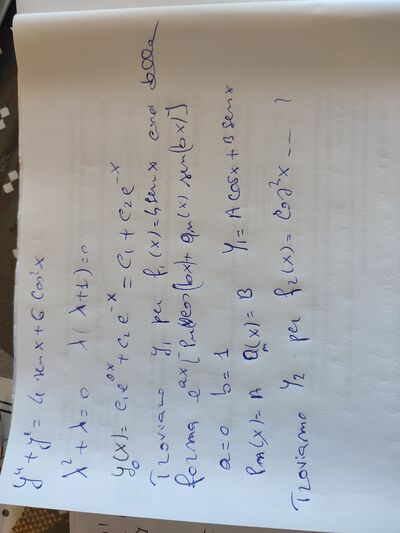 y'' + y' = 4 sen x + 6 cos²x
λ² + λ = 0   λ(λ+1) = 0
y₀(x) = c₁e^{0x} + c₂e^{-x} = c₁ + c₂e^{-x}
Troviamo y₁ per f₁(x) = 4 sen x che è della
forma e^{ax}[Pₙ(x)cos(bx) + qₘ(x) sen(bx)]
a = 0   b = 1
Pₘ(x) = A   Qₙ(x) = B   y₁ = A cos x + B sen x
Troviamo y₂ per f₂(x) = cos²x --- ?